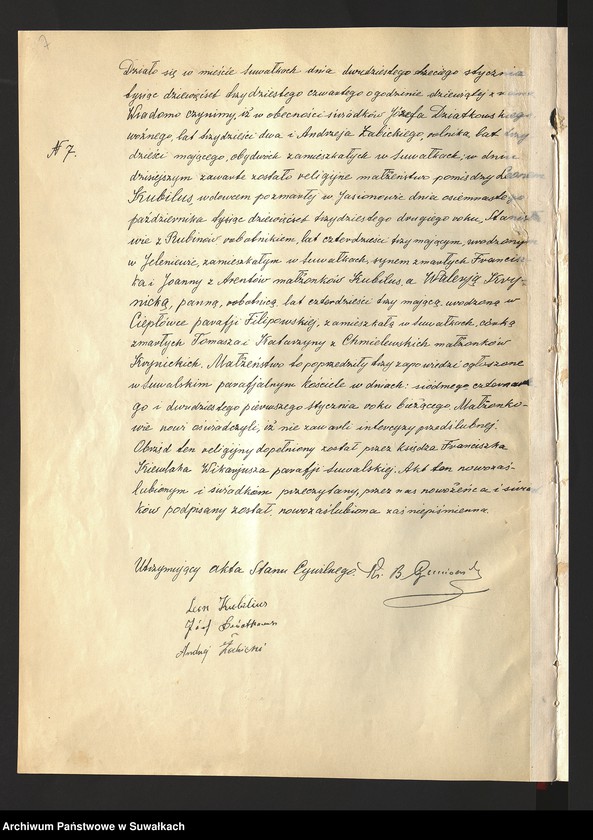 7
Działo się w mieście Suwałkach dnia dwudziestego trzeciego stycznia
tysiąc dziewięćset trzydziestego czwartego o godzinie dziewiątej z rana
Wiadomo czynimy, iż w obecności świadków Józefa Dziatkowskiego
woźnego, lat trzydzieści dwa i Andrzeja Żabickiego, rolnika, lat trzy
№ 7.
dzieści mającego, obydwóch zamieszkałych w Suwałkach, w dniu
dzisiejszym zawarte zostało religijne małżeństwo pomiędzy Leonem
Kubilus, wdowcem po zmarłej w Jasionowie dnia osiemnastego
października tysiąc dziewięćset trzydziestego drugiego roku, Stanisła
wie z Rubinów robotnikiem, lat czterdzieści trzy mającym, urodzonym
w Jeleniewie, zamieszkałym w Suwałkach, synem zmarłych Francisz
ka i Joanny z małżonków Kubilus, a Walerją Kry-
nicką, panną, robotnicą, lat czterdzieści trzy mającą, urodzoną w
Ciepłówce parafji Filipowskiej, zamieszkałą w Suwałkach, córką
zmarłych Tomasza i Katarzyny z Chmielewskich małżonków
Krynickich. Małżeństwo to poprzedziły trzy zapowiedzi ogłoszone
w Suwalskim parafjalnym kościele w dniach: siódmego, czternaste
go i dwudziestego pierwszego stycznia roku bieżącego. Małżonko-
wie nowi oświadczyli, iż nie zawarli intercyzy przedślubnej.
Obrzęd ten religijny dopełniony został przez księdza Franciszka
Wikarjusza parafji Suwalskiej. Akt ten nowozaś-
lubionym i świadkom przeczytany, przez nas nowożeńca i świad
ków podpisany został, nowozaślubiona zaś niepiśmienna.
Utrzymujący akta Stanu Cywilnego. Ks. B.
Leon Kubilius
Józef
Andrzej Żabicki
Archiwum Państwowe w Suwałkach